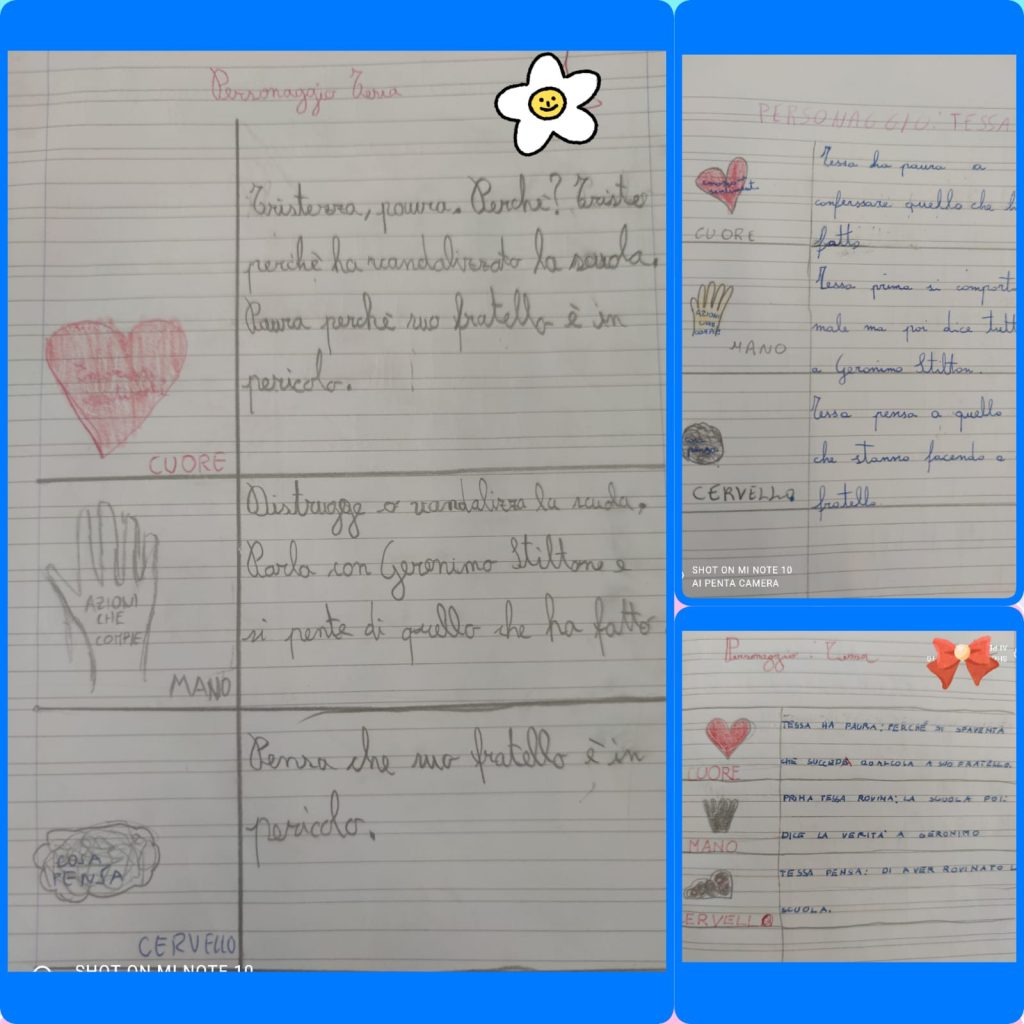 Personaggio Tessa
Tristezza, paura. Perchè? Triste
perchè ha vandalizzato la scuola.
Paura perchè suo fratello è in
pericolo.
CUORE
Distrugge o vandalizza la scuola.
Parla con Geronimo Stilton e
si pente di quello che ha fatto
AZIONI
CHE
COMPIE
MANO
Pensa che suo fratello è in
pericolo.
COSA
PENSA
CERVELLO
SHOT ON MI NOTE 10
PERSONAGGIO: TESSA
Tessa ha paura a
conferssare quello che h
fatto
CUORE
Tessa prima si comport
male ma poi dice tutt
a Geronimo Stilton.
AZIONI
CHE
COMPIE
MANO
Tessa pensa a quello
che stanno facendo a
fratello
CERVELLO
SHOT ON MI NOTE 10
AI PENTA CAMERA
Personaggio: Tessa
TESSA HA PAURA: PERCHÉ SI SPAVENTA
CHE SUCCEDA QUALCOLA A SUO FRATELLO.
CUORE
PRIMA TESSA ROVINA: LA SCUOLA POI:
DICE LA VERITÀ A GERONIMO
MANO
TESSA PENSA: DI AVER ROVINATO L
SCUOLA.
ERVELLO